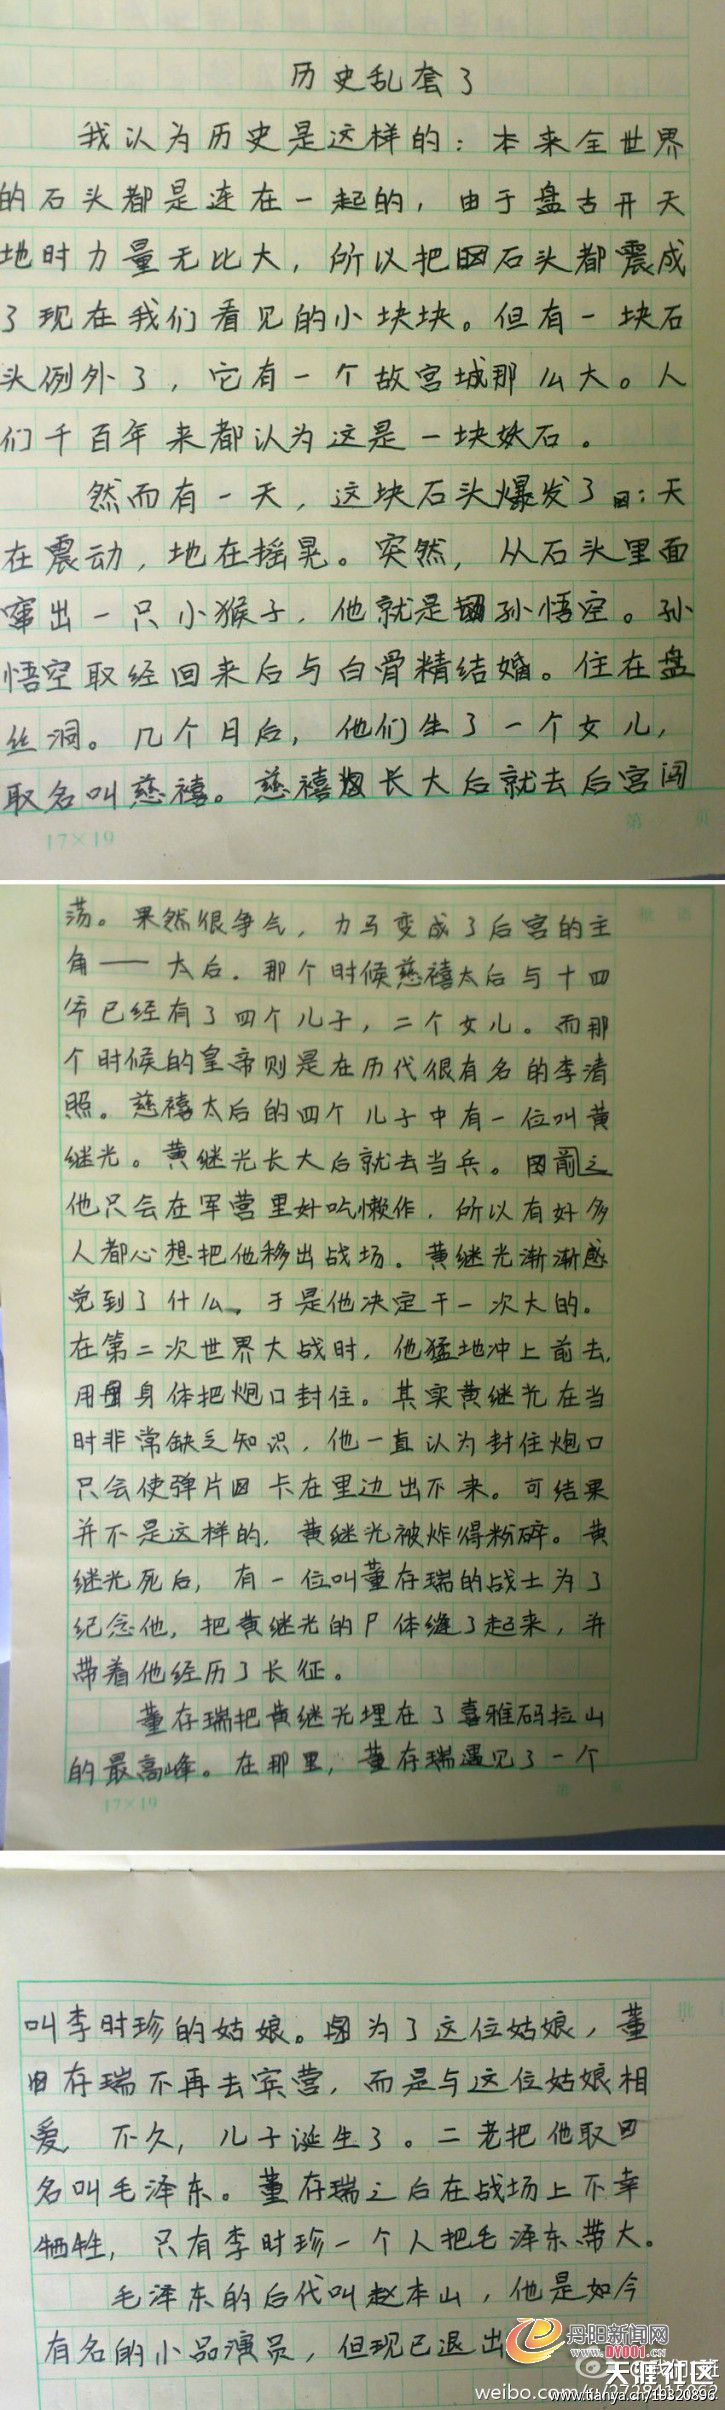 历史乱套了
我认为历史是这样的：本来全世界
的石头都是连在一起的，由于盘古开天
地时力量无比大，所以把石头都震成
了现在我们看见的小块块。但有一块石
头例外了，它有一个故宫城那么大。人
们千百年来都认为这是一块妖石。
然而有一天，这块石头爆发了：天
在震动，地在摇晃。突然，从石头里面
窜出一只小猴子，他就是孙悟空。孙
悟空取经回来后与白骨精结婚。住在盘
丝洞。几个月后，他们生了一个女儿，
取名叫慈禧。慈禧长大后就去后宫闯
17×19
第 页
批 语
荡。果然很争气，力马变成了后宫的主
角——太后。那个时候慈禧太后与十四
爷已经有了四个儿子，二个女儿。而那
个时候的皇帝则是在历代很有名的李清
照。慈禧太后的四个儿子中有一位叫黄
继光。黄继光长大后就去当兵。前之
他只会在军营里好吃懒作，所以有好多
人都心想把他移出战场。黄继光渐渐感
觉到了什么，于是他决定干一次大的。
在第二次世界大战时，他猛地冲上前去，
用身体把炮口封住。其实黄继光在当
时非常缺乏知识，他一直认为封住炮口
只会使弹片卡在里边出不来。可结果
并不是这样的，黄继光被炸得粉碎。黄
继光死后，有一位叫董存瑞的战士为了
纪念他，把黄继光的尸体缝了起来，并
带着他经历了长征。
董存瑞把黄继光埋在了喜雅码拉山
的最高峰。在那里，董存瑞遇见了一个
17×19
第 页
批
叫李时珍的姑娘。为了这位姑娘，董
存瑞不再去宾营，而是与这位姑娘相
爱 不久，儿子诞生了。二老把他取
名叫毛泽东。董存瑞之后在战场上不幸
牺牲，只有李时珍一个人把毛泽东带大。
毛泽东的后代叫赵本山，他是如今
有名的小品演员，但现已退出
丹阳新闻网
DY001.COM
天涯社区
weibo.com/u/
www.tianya.cn/19320896